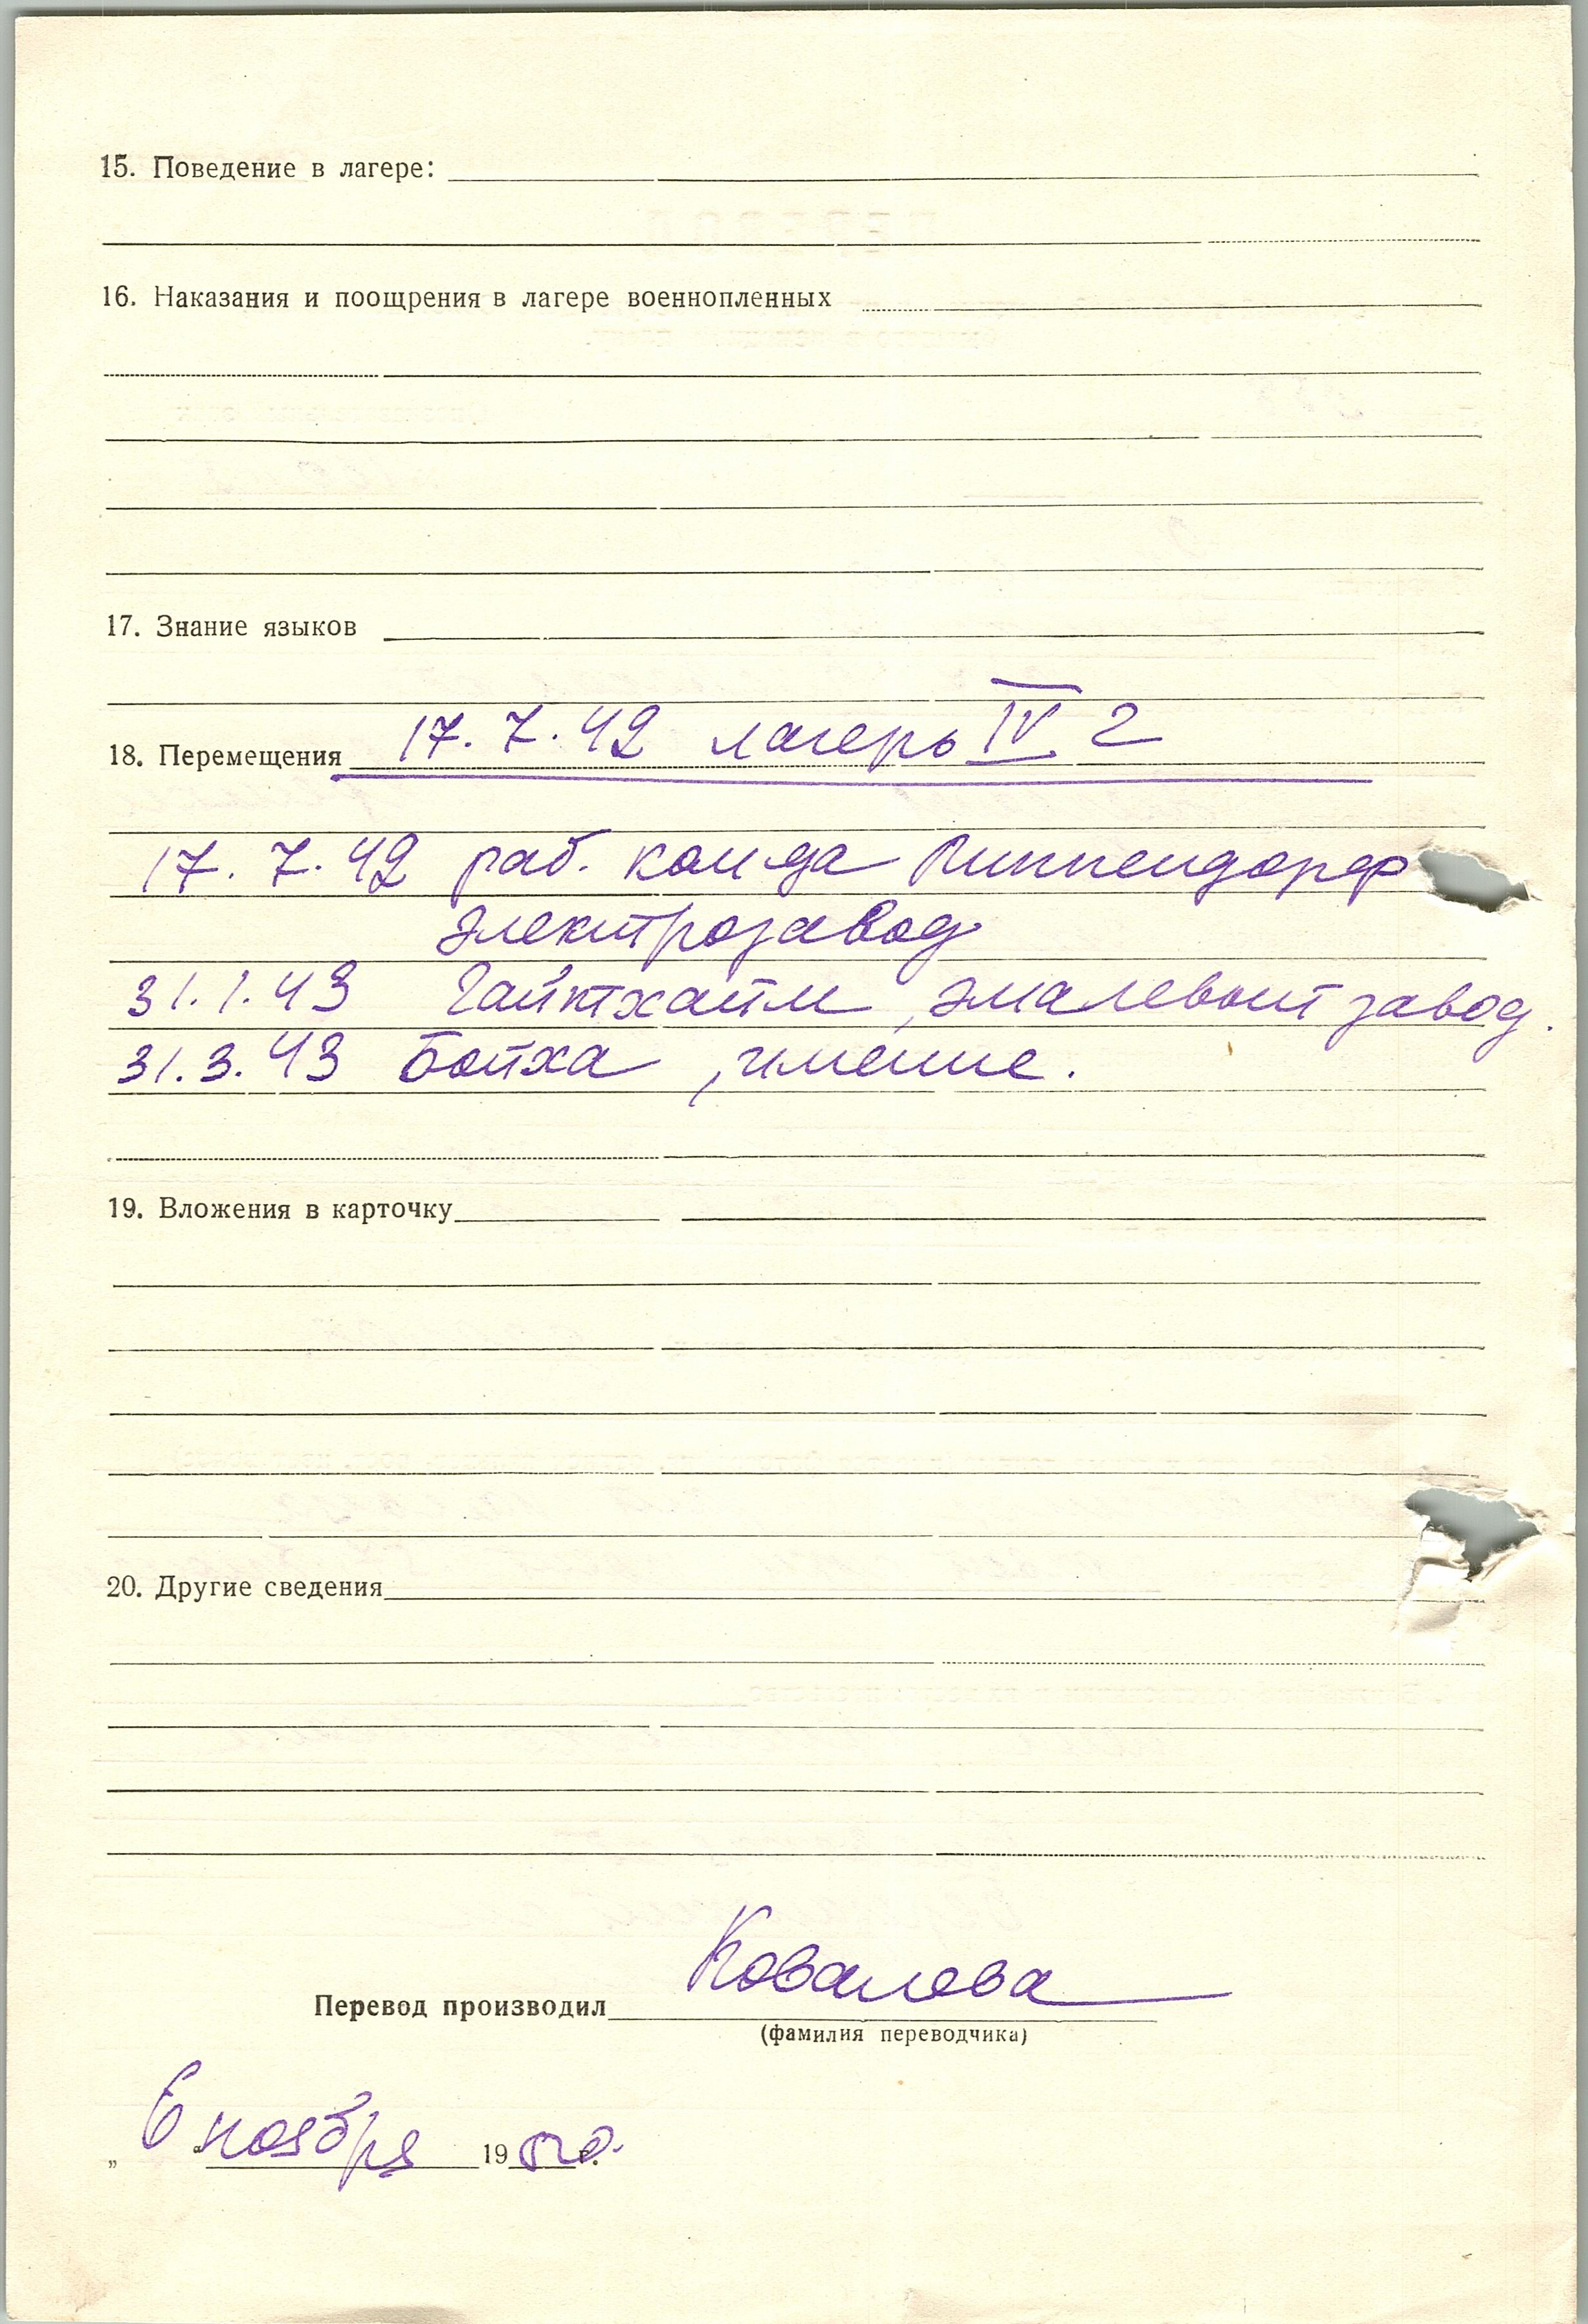 15. Поведение в лагере:
16. Наказания и поощрения в лагере военнопленных
17. Знание языков
18. Перемещения 17.7.42 лагерь IV Г
17.7.42 раб. кои да
электрозавод
31.1.43 эмалевый завод.
31.3.43 Бойха, имение.
19. Вложения в карточку
20. Другие сведения
Перевод производил Ковалева
(фамилия переводчика)
„6“ ноября 1950 г.